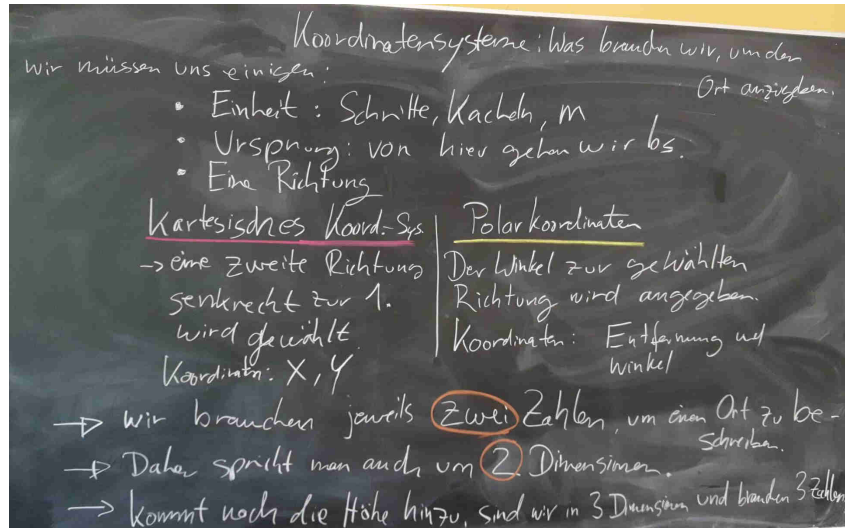 Koordinatensysteme: Was brauchen wir, um den
Ort anzugeben.
Wir müssen uns einigen:
• Einheit: Schritte, Kacheln, m
• Ursprung: von hier gehen wir los.
• Eine Richtung
Kartesisches Koord.-Sys.
→ eine zweite Richtung
senkrecht zur 1.
wird gewählt
Koordinaten: X, Y
Polarkoordinaten
Der Winkel zur gewählten
Richtung wird angegeben.
Koordinaten: Entfernung und
Winkel
→ Wir brauchen jeweils zwei Zahlen, um einen Ort zu be-
schreiben.
→ Daher spricht man auch von 2 Dimensionen.
→ Kommt noch die Höhe hinzu, sind wir in 3 Dimensionen und brauchen 3 Zahlen